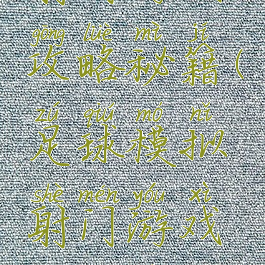 gōng lüè mì jí
攻略秘籍(
zú qiú mó nǐ
足球模拟
shè mén yóu xì
射门游戏